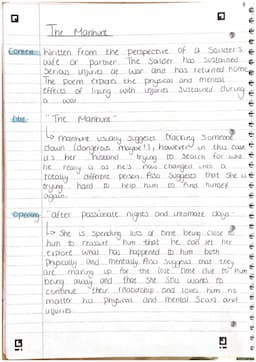 The Manhunt
Context Written from the perspective of a Soldier's
wife or partner. The Soldier has sustained
serious injuries at war and has returned home
The poem explores the physical and mental
effects of living with injuries sustained during
a war.
title "The Manhunt"
↳ Manhunt usually suggests tracking someone
down (dangerous maybe?), however in this case
it's her husband trying to search for who
he really is as he's now changed into a
totally different person. Also suggests that she is
trying hard to help him to find himself
again.
Opening "after passionate nights and intimate days"
↳ She is spending lots of time being close to
him to reassure him that he can let her
explore what has happened to him both
physically and mentally. Also suggests that they
are making up for the lost time due to him
being away and that she still wants to
continue their relationship and loves him no
matter his physical and mental scars and
injuries.